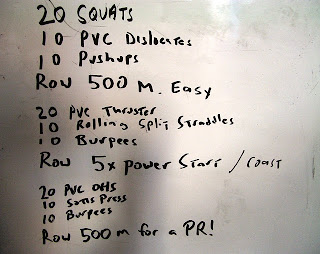 20 SQUATS
10 PVC Dislocates
10 Pushups
Row 500 M. Easy
20 PVC Thruster
10 Rolling Split Straddles
10 Burpees
Row 5x power Start / Coast
20 PVC OHS
10 Sots Press
10 Burpees
Row 500 m for a PR!